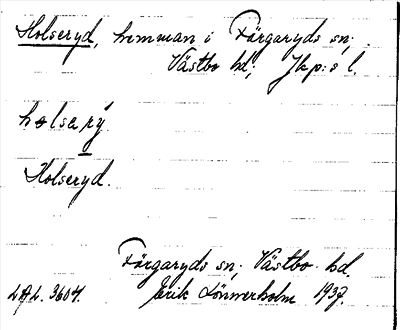 Holseryd, hemman i Färgaryds sn;
Västbo hd; Jkp:s l.
holsarý
Holseryd.
Färgaryds sn; Västbo hd
LAL. 3607. Erik Lönnerholm 1937.